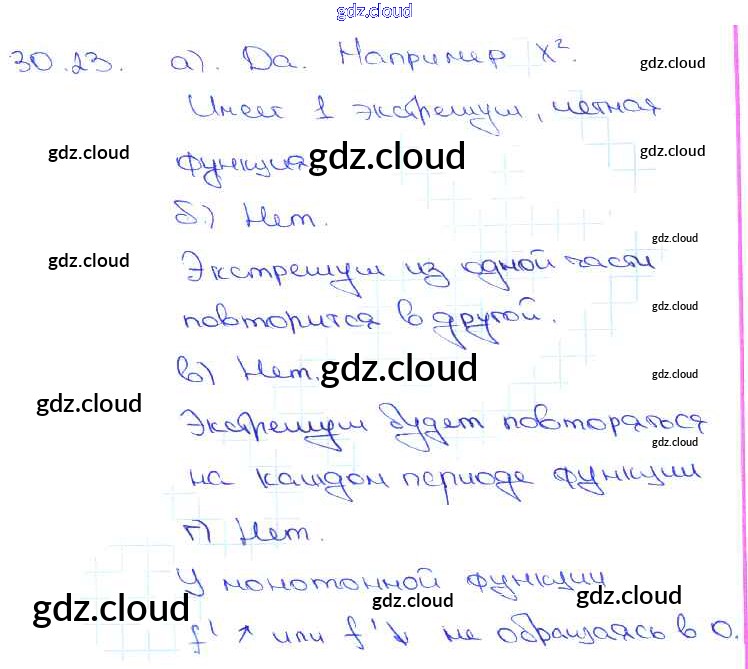 gdz.cloud
30.23. а). Да. Например x².
gdz.cloud
Имеет 1 экстремум, четная
gdz.cloud
gdz.cloud
функция
gdz.cloud
б.) Нет.
gdz.cloud
gdz.cloud
Экстремум из одной части
gdz.cloud
повторится в другой.
в) Нет.
gdz.cloud
gdz.cloud
gdz.cloud
Экстремум будет повторяться
gdz.cloud
на каждом периоде функции
г) Нет.
У монотонной функции
gdz.cloud
gdz.cloud
gdz.cloud
f' ↗ или f' ↘ не обращаясь в 0.